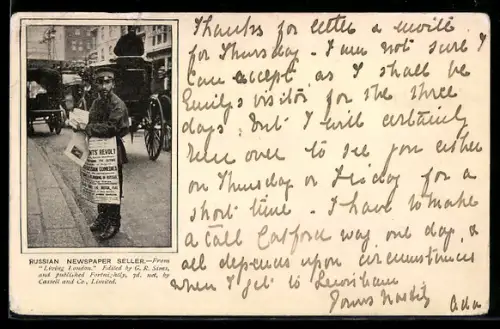 Thanks for letter & invite
for Thursday. I am not sure I
can accept as I shall be
Emily's visitor for the three
days, but I will certainly
run over to see you either
on Thursday or Friday for a
short time. I have to make
a call Catford way one day, &
all depends upon circumstances
when I get to Lewisham
Yours hastily Ada
REVOLT
RUSSIAN NEWSPAPER SELLER.—From
"Living London." Edited by G. R. Sims,
and published Fortnightly, 7d. net, by
Cassell and Co., Limited.